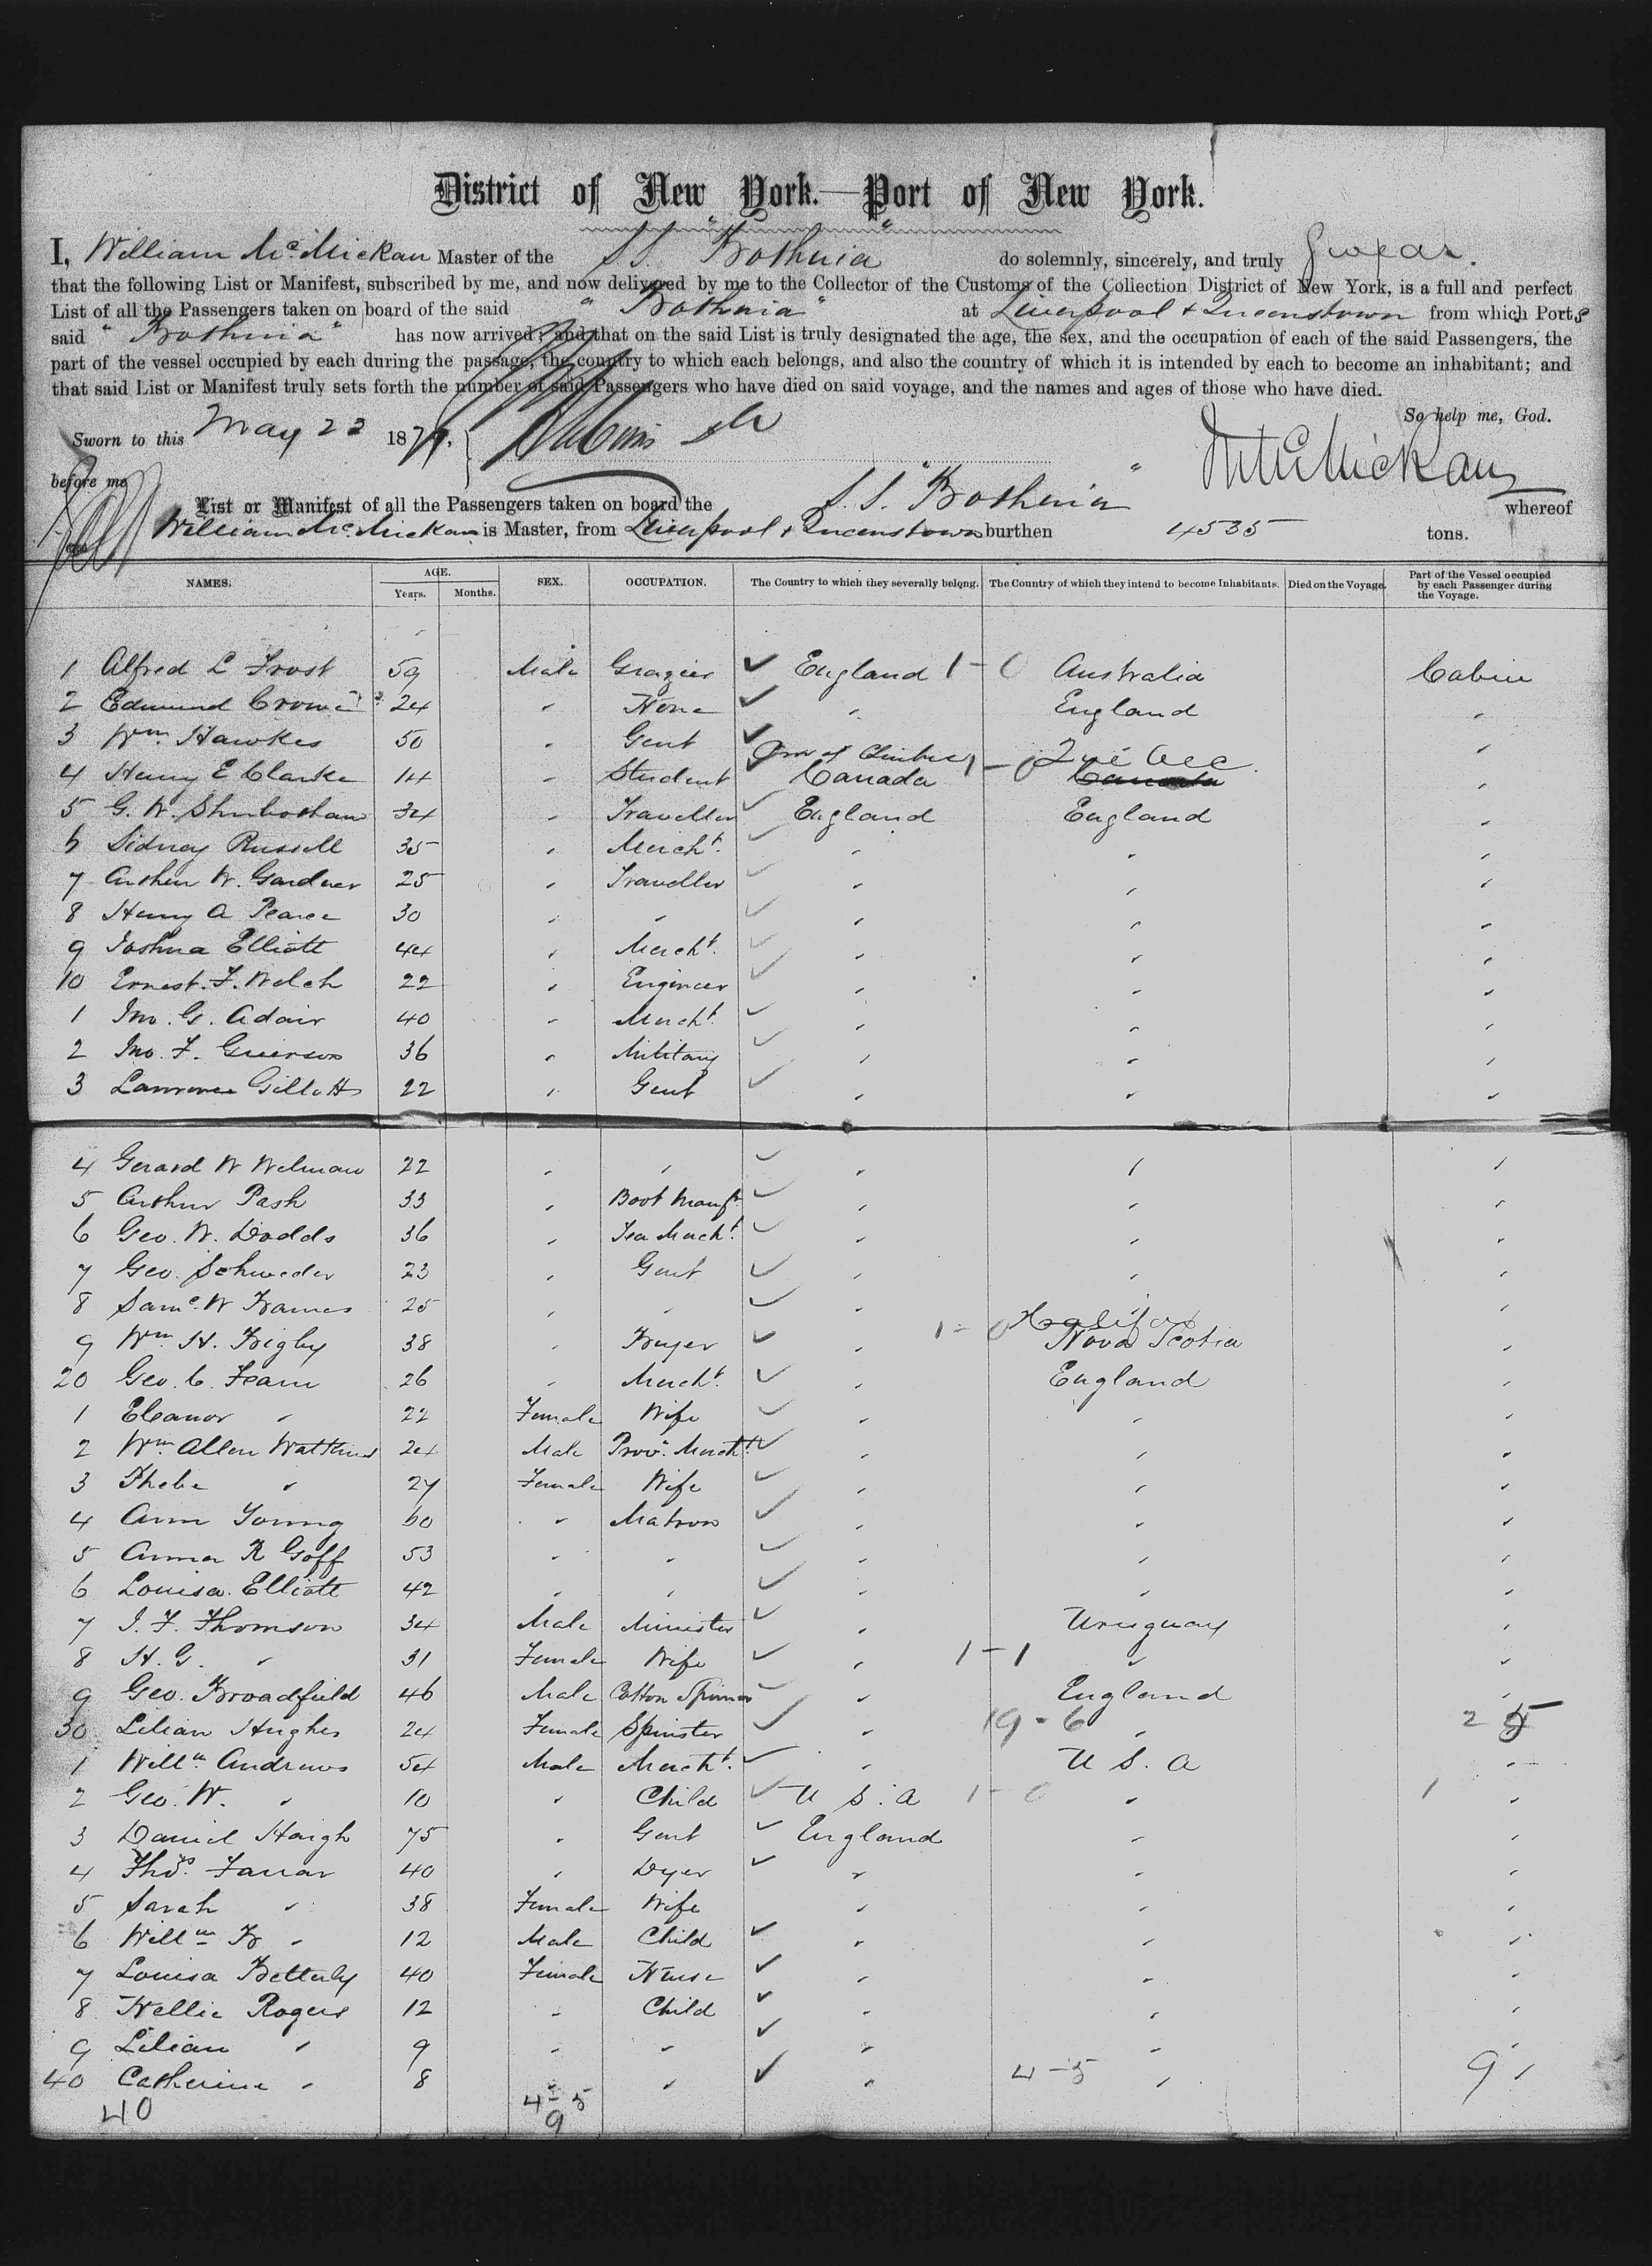 District of New York.—Port of New York.
I, William McMickan Master of the S.S. "Bothnia" do solemnly, sincerely, and truly Swear.
that the following List or Manifest, subscribed by me, and now delivered by me to the Collector of the Customs of the Collection District of New York, is a full and perfect
List of all the Passengers taken on board of the said "Bothnia" at Liverpool + Queenstown from which Ports
said "Bothnia" has now arrived; and that on the said List is truly designated the age, the sex, and the occupation of each of the said Passengers, the
part of the vessel occupied by each during the passage, the country to which each belongs, and also the country of which it is intended by each to become an inhabitant; and
that said List or Manifest truly sets forth the number of said Passengers who have died on said voyage, and the names and ages of those who have died.
So help me, God.
Sworn to this May 22 1879.
before me
W McMickan
List or Manifest of all the Passengers taken on board the S.S. "Bothnia" whereof
William McMickan is Master, from Liverpool + Queenstown burthen 4535 tons.
NAMES. AGE. Years. Months. SEX. OCCUPATION. The Country to which they severally belong. The Country of which they intend to become Inhabitants. Died on the Voyage. Part of the Vessel occupied by each Passenger during the Voyage.
1 Alfred L Frost 59 Male Grazier ✓ England 1-0 Australia Cabin
2 Edmund 24 " None ✓ " England "
3 Wm. Hawkes 50 " Gent ✓ Quebec "
4 Henry E Clarke 14 " Student ✓ Canada 1-0 Canada "
5 G. W. 34 " Traveller ✓ England England "
6 Sidney Russell 35 " Mercht. ✓ " " "
7 Arthur W. Gardner 25 " Traveller ✓ " " "
8 Henry A Pearce 30 " " ✓ " " "
9 Joshua Elliott 44 " Mercht. ✓ " " "
10 Ernest. F. Welch 22 " Engineer ✓ " " "
1 Jno. G. Adair 40 " Mercht. ✓ " " "
2 Jno. F. Grierson 36 " Military ✓ " " "
3 Lawrence Gillott 22 " Gent ✓ " " "
4 Gerard W Welman 22 " " ✓ " " "
5 Arthur Pash 33 " Boot Manufr. ✓ " " "
6 Geo. W. Dodds 36 " Tea Mercht. ✓ " " "
7 Geo. Schweder 23 " Gent ✓ " " "
8 Saml. W 25 " " ✓ " " "
9 Wm. H. Bigby 38 " Buyer ✓ " 1-0 Halifax Nova Scotia "
20 Geo. C. 26 " Mercht. ✓ " England "
1 Eleanor " 22 Female Wife ✓ " " "
2 Wm. Allen Watkins 24 Male Provn. Mercht. ✓ " " "
3 Phebe " 27 Female Wife ✓ " " "
4 Ann Young 60 " Matron ✓ " " "
5 Anna R Goff 53 " " ✓ " " "
6 Louisa Elliott 42 " " ✓ " " "
7 J. F. Thomson 34 Male Minister ✓ " Uruguay "
8 H. G. " 31 Female Wife ✓ " 1-1 " "
9 Geo. Broadfield 46 Male Cotton Spinner ✓ " England "
30 Lilian Hughes 24 Female Spinster ✓ " 19-6 " 25
1 Willm. Andrews 54 Male Mercht. ✓ " U S. A "
2 Geo. W. " 10 " Child ✓ U S. A 1-0 " 1 "
3 Daniel Haigh 75 " Gent ✓ England " "
4 Thos. Farrar 40 " Dyer ✓ " " "
5 Sarah " 38 Female Wife " " "
6 Willm. " 12 Male Child ✓ " " "
7 Louisa Betterly 40 Female Nurse ✓ " " "
8 Nellie Rogers 12 " Child ✓ " " "
9 Lilian " 9 " " ✓ " " "
40 Catherine " 8 " " ✓ " 4-5 " 9 "
40 4-5
9